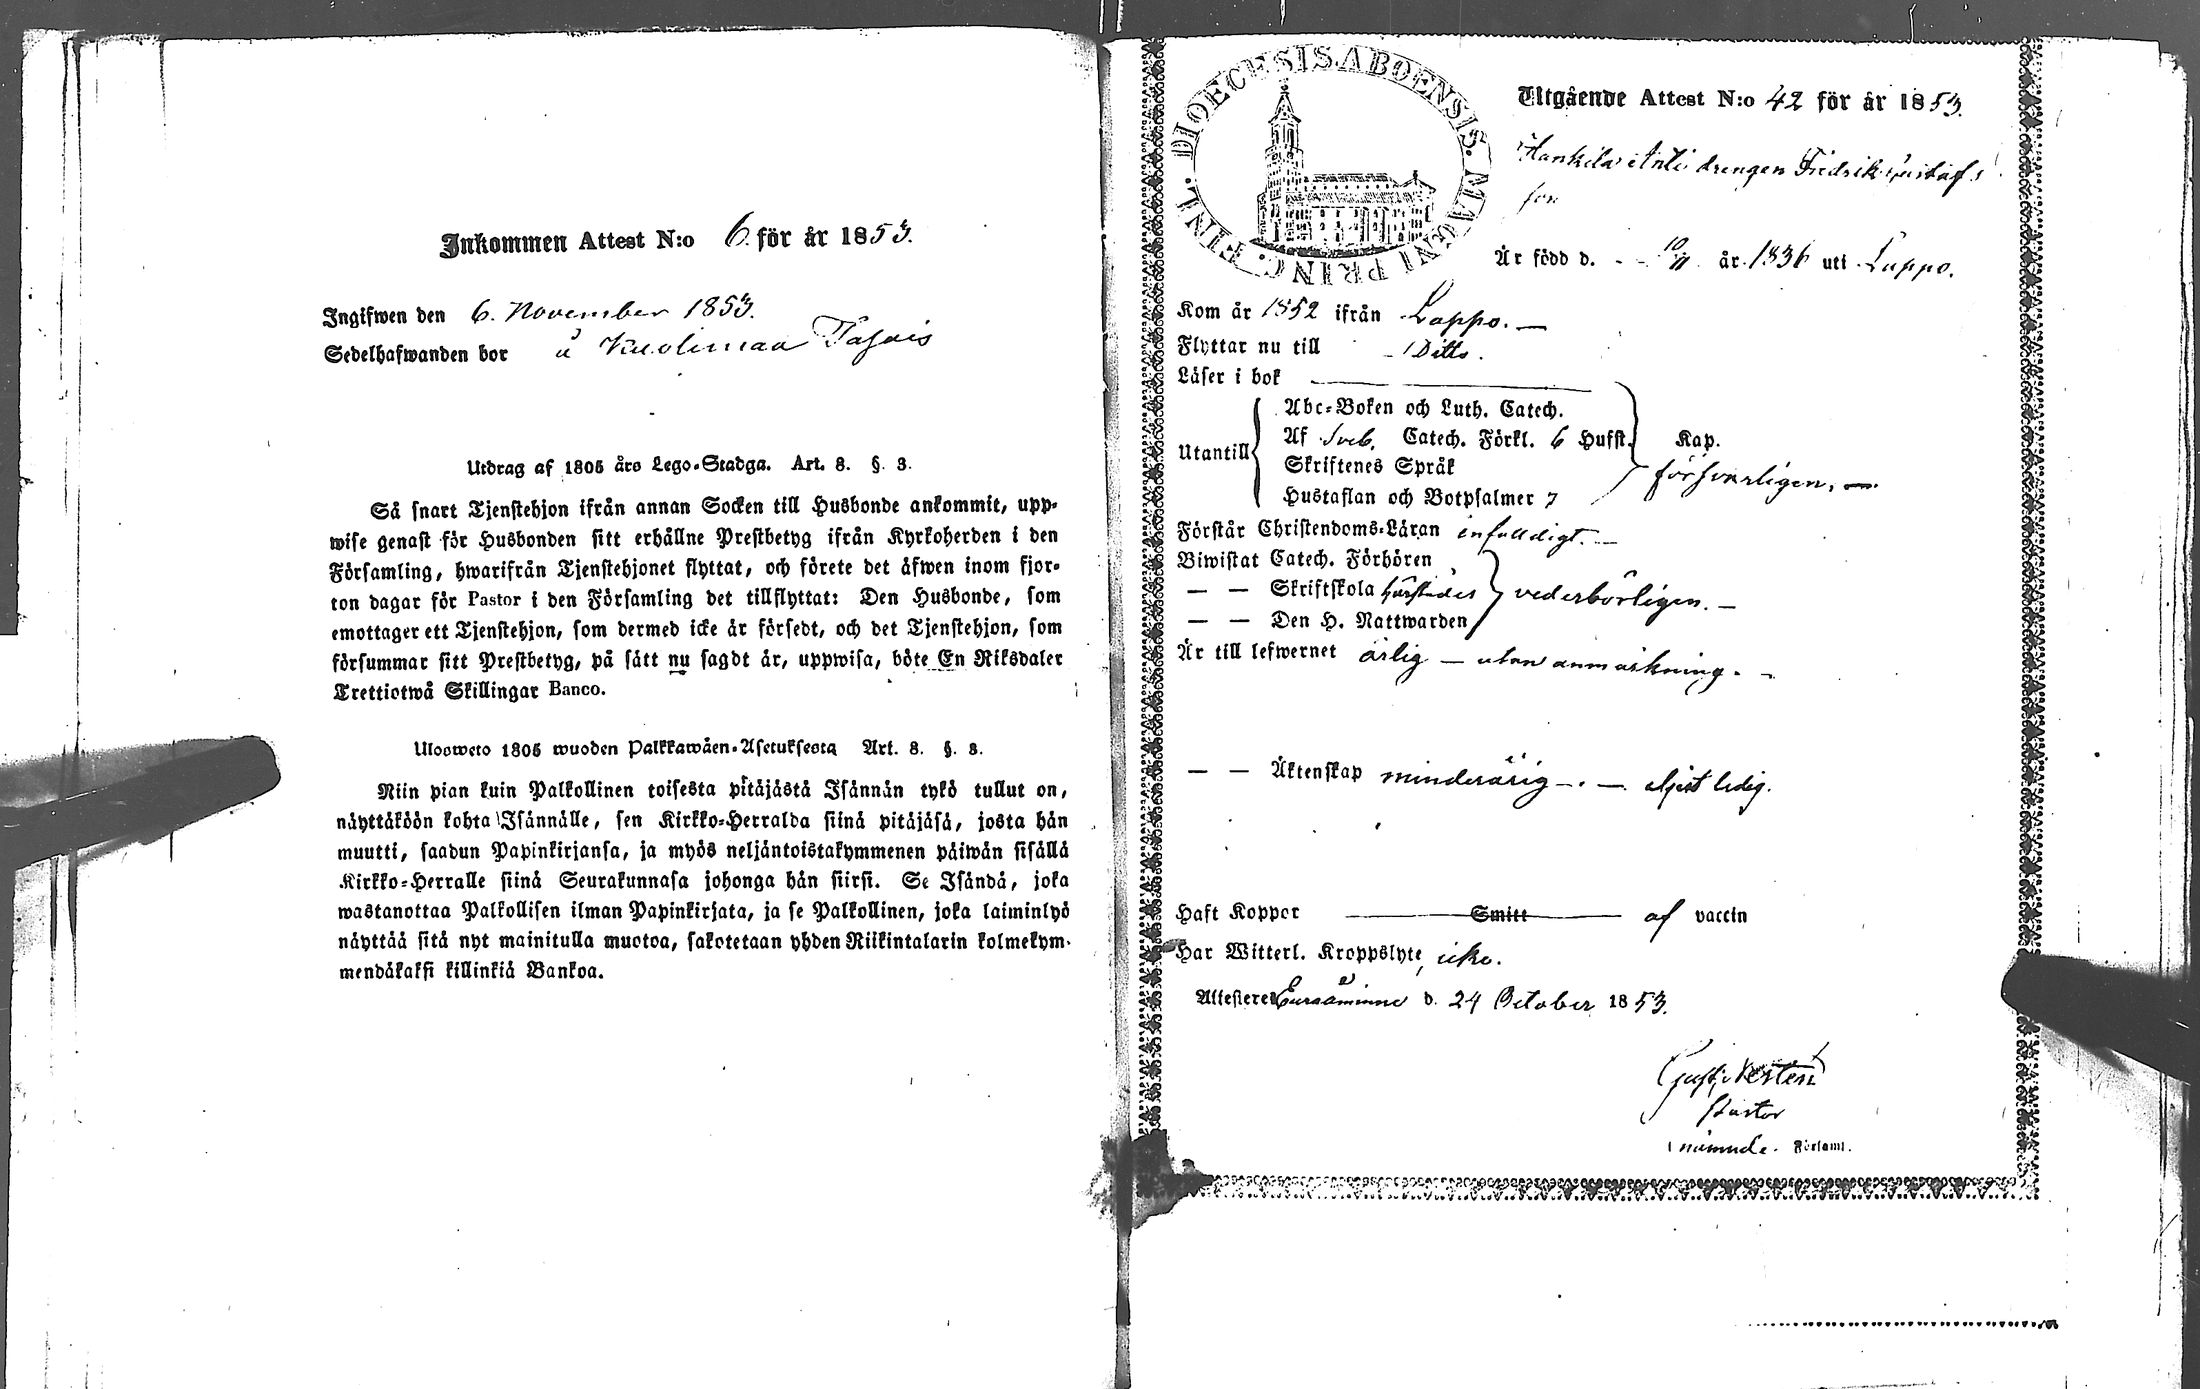 Inkommen Attest N:o 6. för år 1853.
Ingifwen den 6. November 1853.
Sedelhafwanden bor å Kuolimaa
Utdrag af 1805 års Lego-Stadga. Art. 8. §. 3.
Så snart Tjenstehjon ifrån annan Socken till Husbonde ankommit, upp-
wise genast för Husbonden sitt erhållne Prestbetyg ifrån Kyrkoherden i den
Församling, hwarifrån Tjenstehjonet flyttat, och förete det åfwen inom fjor-
ton dagar för Pastor i den Församling det tillflyttat: Den Husbonde, som
emottager ett Tjenstehjon, som dermed icke är försedt, och det Tjenstehjon, som
försummar sitt Prestbetyg, på sått nu sagdt är, uppwisa, böte En Riksdaler
Trettiotwå Skillingar Banco.
Ulosweto 1805 wuoden Palkkawäen-Asetuksesta Art. 8. §. 3.
Niin pian kuin Palkollinen toisesta pitäjästä Isännän tykö tullut on,
näyttäköön kohta Isännälle, sen Kirkko-Herralda siinä pitäjäsä, josta hän
muutti, saadun Papinkirjansa, ja myös neljäntoistakymmenen päiwän sisällä
Kirkko-Herralle siinä Seurakunnasa johonga hän siirsi. Se Isändä, joka
wastanottaa Palkollisen ilman Papinkirjata, ja se Palkollinen, joka laiminlyö
näyttää sitä nyt mainitulla muotoa, sakotetaan yhden Riikintalarin kolmekym-
mendäkaksi killinkiä Bankoa.
DIOECESIS ABOENSIS. MAGNI PRINC. FINL.
Utgående Attest N:o 42 för år 1853.
Hankila Anti drengen Fredrik Gustafs
son
Är född d. 10/11 år 1836 uti Lappo.
Kom år 1852 ifrån Lappo. —
Flyttar nu till Ditto.
Läser i bok
Utantill
Abc-Boken och Luth. Catech.
Af Sveb. Catech. Förkl. 6 Hufst. Kap.
Skriftenes Språk
försvarligen. —
Hustaflan och Botpsalmer 7
Förstår Christendoms-Läran enfaldigt. —
Biwistat Catech. Förhören
— — Skriftskola härstädes vederbörligen. —
— — Den H. Nattwarden
Är till lefwernet ärlig — utan anmärkning. —
— — Äktenskap minderårig —. — eljest ledig.
Haft Koppor Smitt af vaccin
Har Witterl. Kroppslyte icke.
Attesteres Euraåminne d. 24 October 1853.
Pastor
i nämnde Församl.